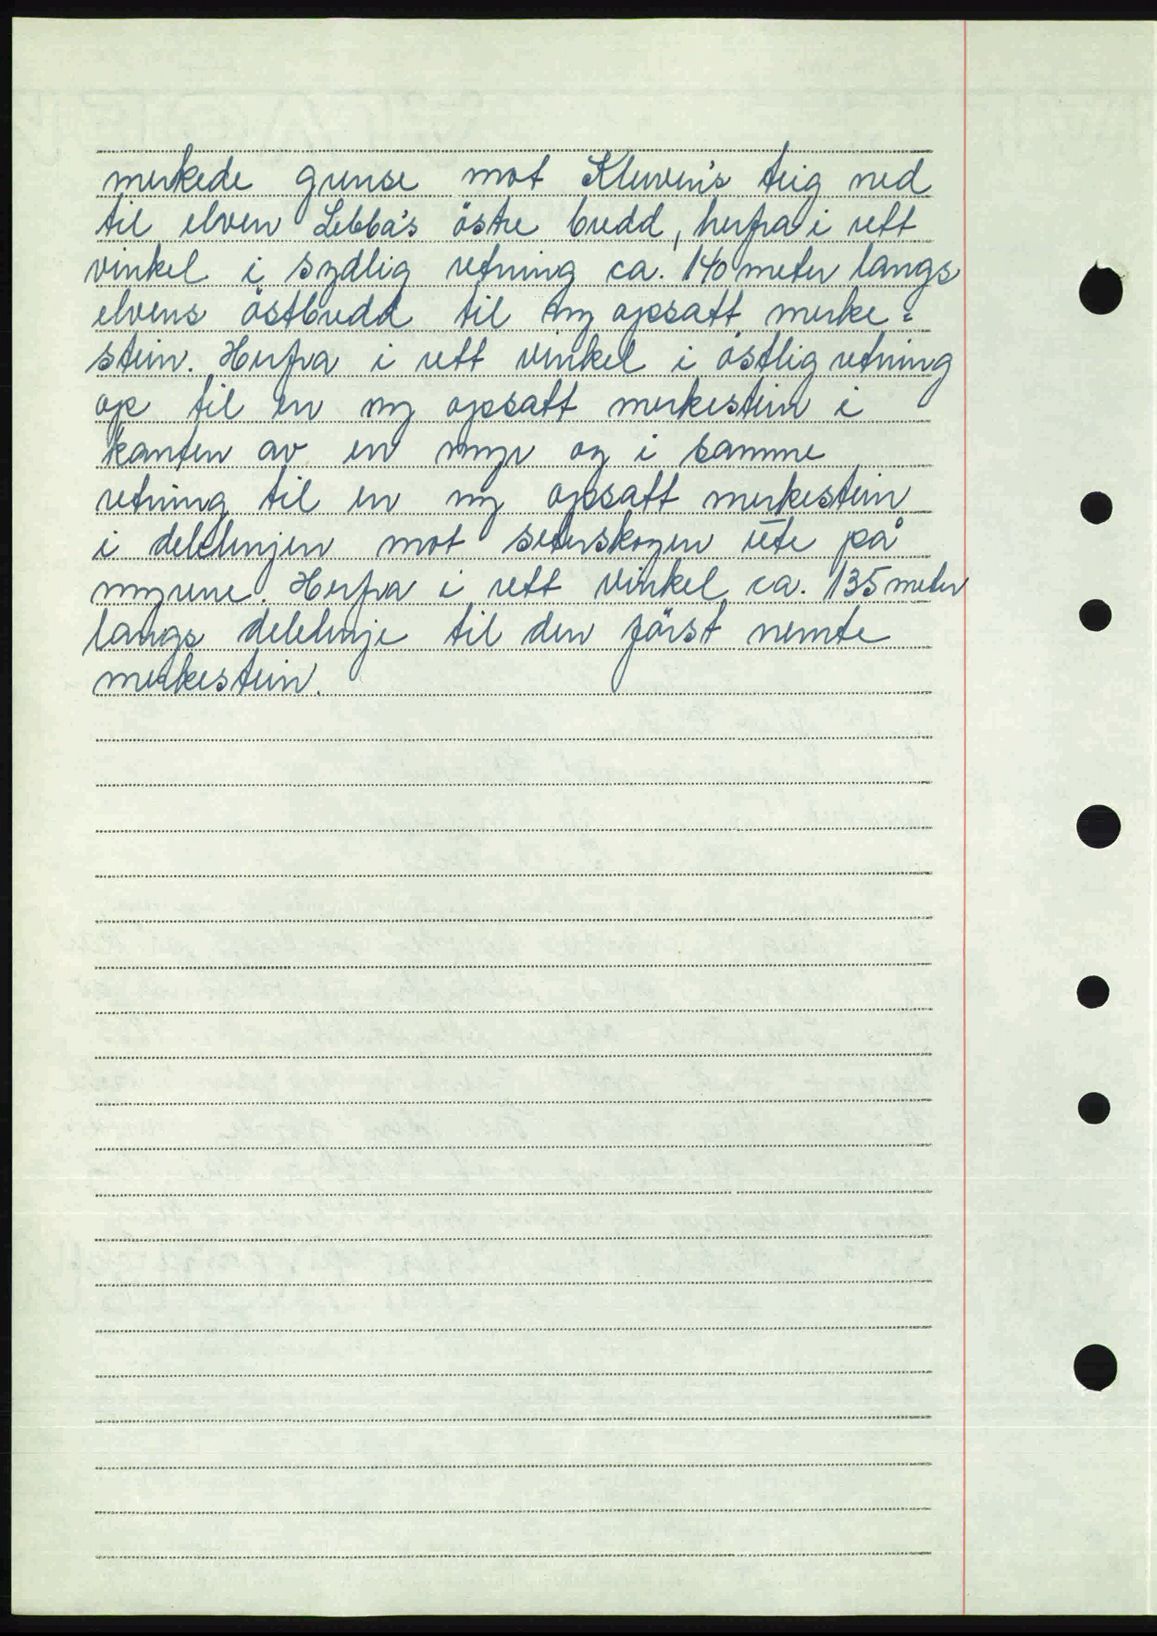 merkede grense mot Kleiven's teig ned
til elven Lebba's östre bredd, herfra i rett
vinkel i sydlig retning ca. 140 meter langs
elvens östbredd til ny opsatt merke=
stein. Herfra i rett vinkel i östlig retning
op til en ny opsatt merkestein i
kanten av en myr og i samme
retning til en ny opsatt merkestein
i delelinjen mot seterskogen ute på
myrene. Herfra i rett vinkel ca. 135 meter
langs delelinje til den först nemte
merkestein.